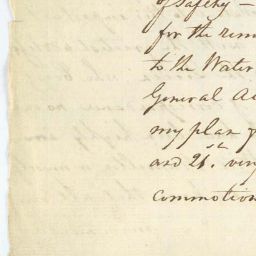 of safety —
for the rem
to the Water
General A
my plan
and 26th ver
commotion